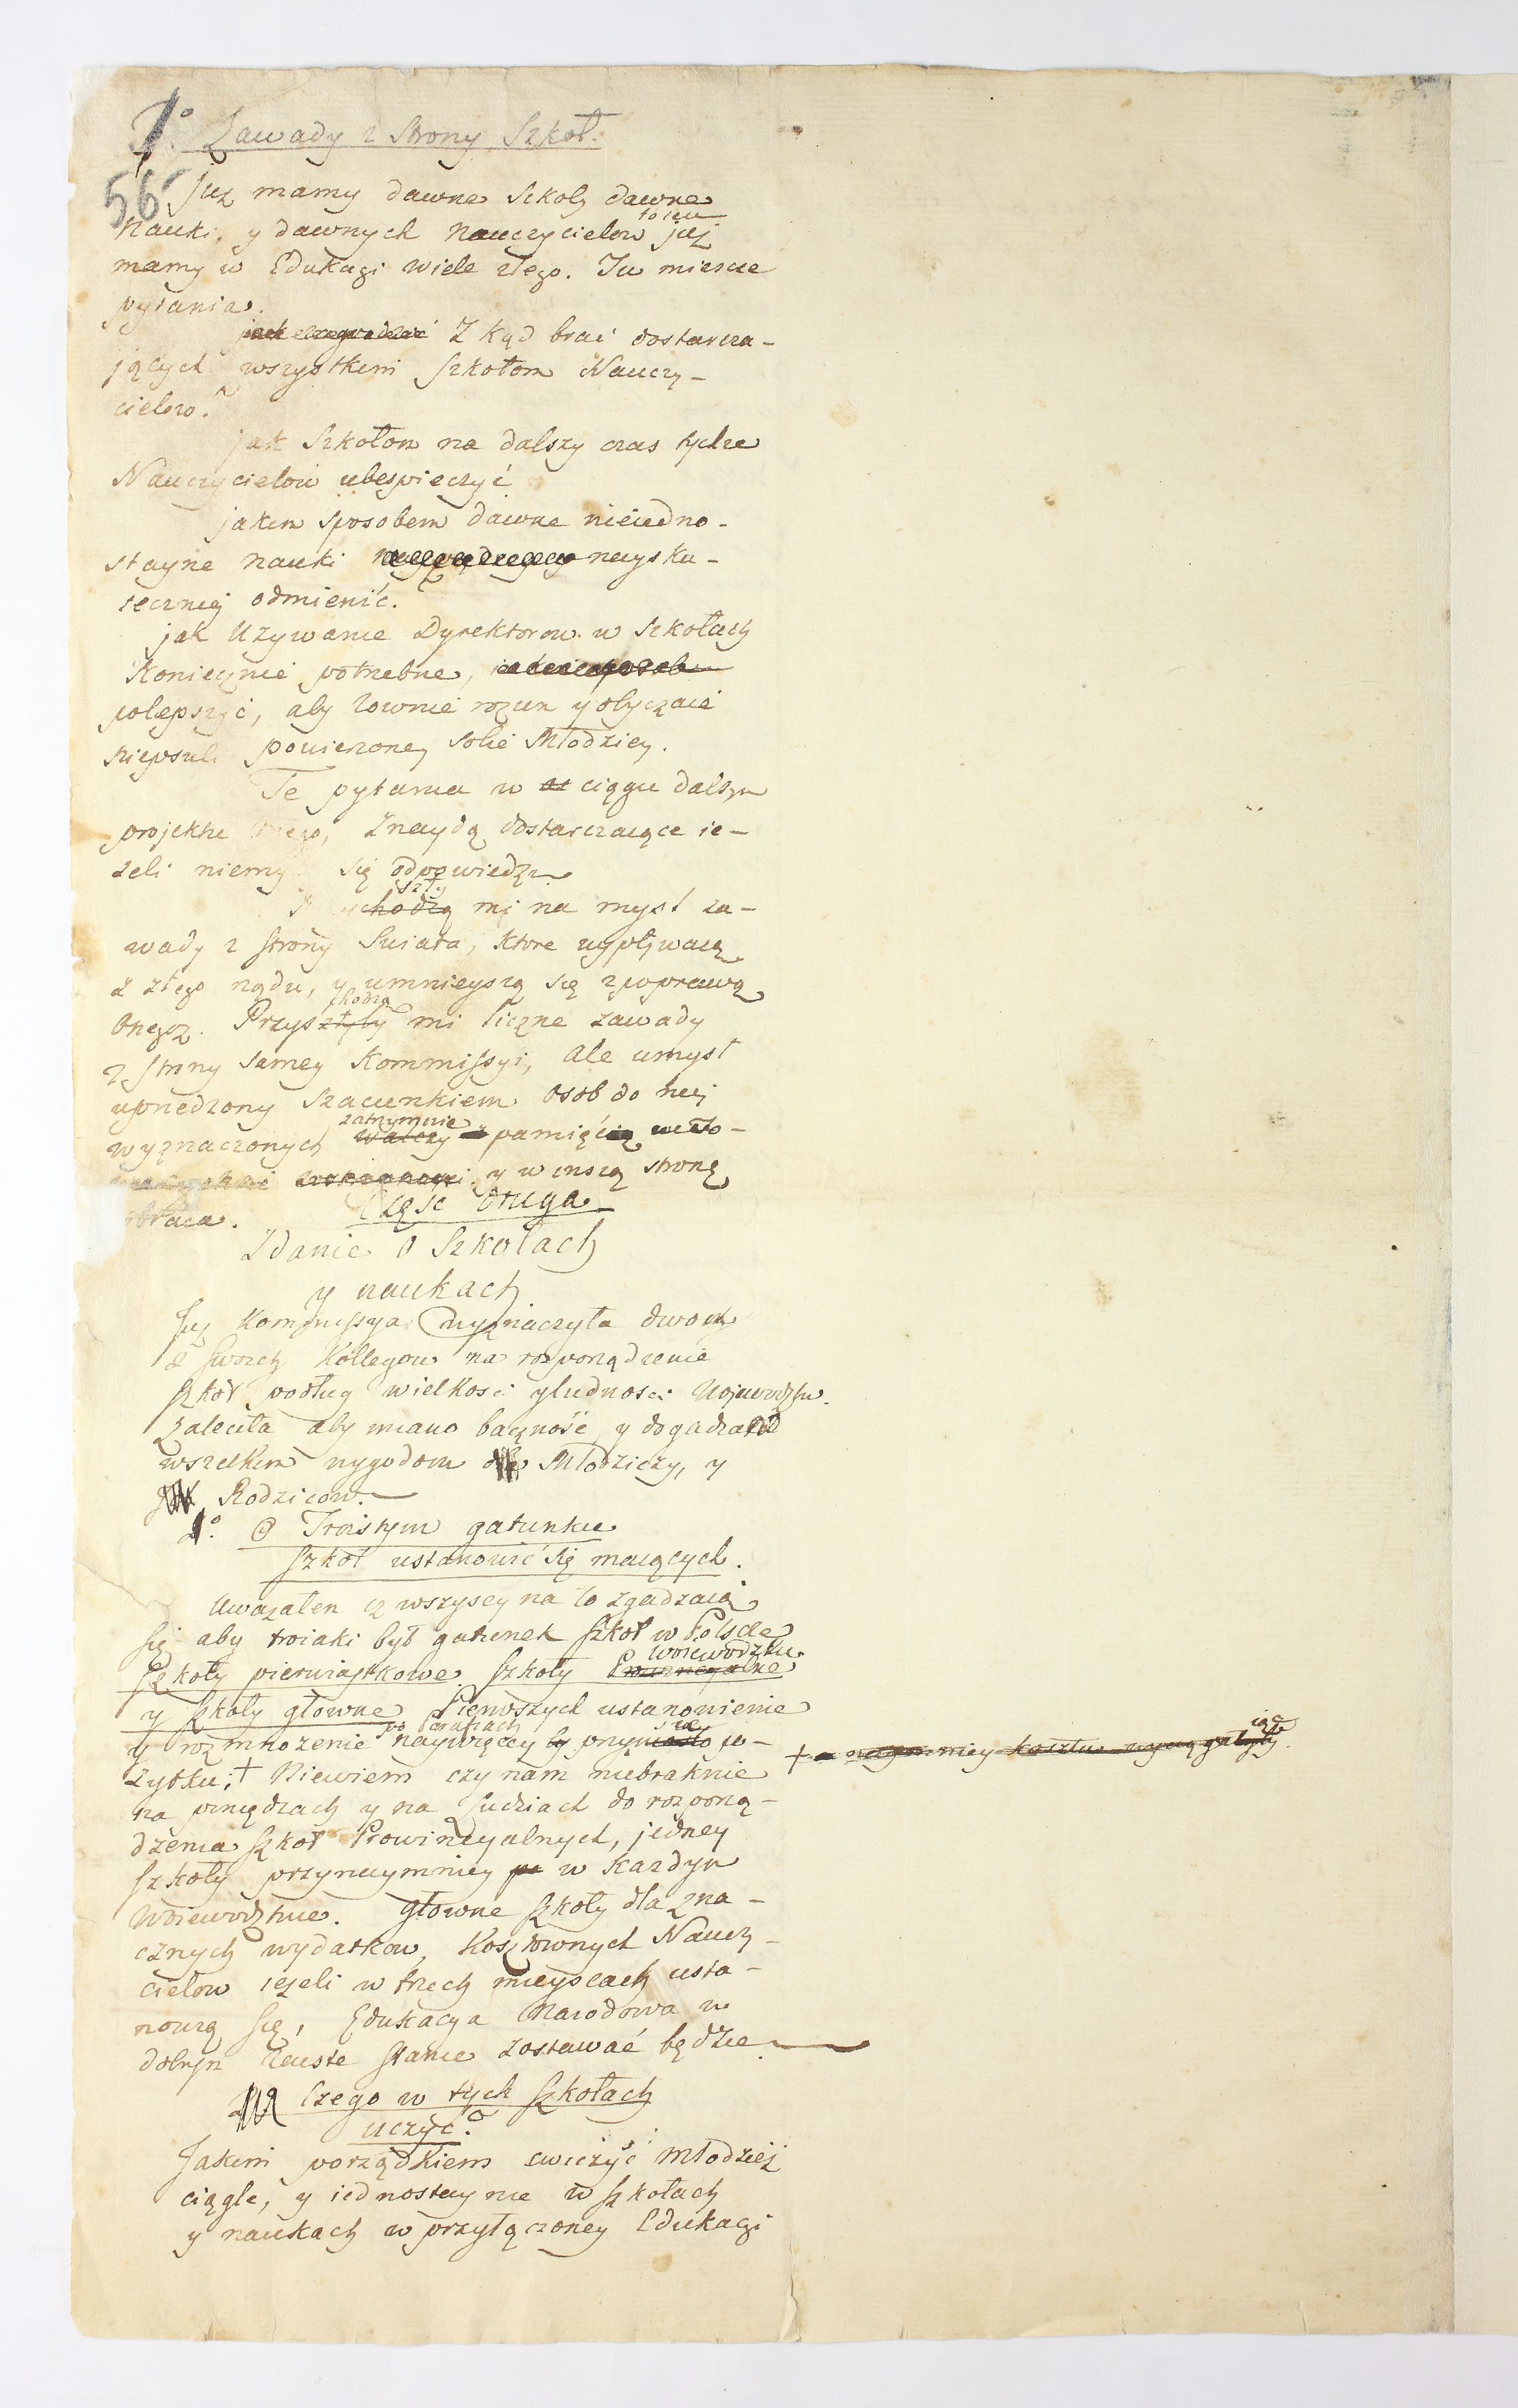 1º Zawady z strony Szkoł.
56
Juz mamy dawne szkoły dawne
Nauki, y dawnych Nauczycielow już
to iest
mamy w Edukacyi wiele złego. Tu miejsce
pytania.
Z kąd brać dostarcza-
jących wszystkim Szkołom Nauczy-
cielow?
jak Szkołom na dalszy czas tychże
Nauczycielow ubespieczyć
jakim sposobem dawne nieiedno-
stayne nauki naysku-
teczniej odmienić.
jak Używanie Dyrektorow w Szkołach
Koniecznie potrzebne,
polepszyć, aby rownie rozum y obyczaie
niepsuli powierzoney sobie Młodzieży.
Te pytania w ciągu dalszym
projektu mego, znaydą dostarczaiące ie-
zeli niemylę się odpowiedzi.
szły
chodzą mi na mysl za-
wady z strony Swiata, ktore wypływaią
z złego rządu, y umnieyszą się z poprawą
chodzą
onegoż. Przyszłyby mi liczne zawady
z strony samey Kommissyi, ale umysł
uprzedzony Szacunkiem osob do niej
zatrzymuie
wyznaczonych walczy z pamięcią
y w inszą stronę
obraca.
Częsc Druga
Zdanie o Szkołach
y naukach
Juz Kommissya wyznaczyła dwoch
z swoich Kollegow na rozporządzenie
szkoł podług wielkosci y ludnosci Wojewodztw.
Zaleciła aby miano baczność, y dogadzano
wszelkim wygodom Młodzieży, y
Rodzicow.
1º. O Troistym gatunku
szkoł ustanowić się maiących.
Uwazałem iz wszyscy na to zgadzaią
się aby troiaki był gatunek szkoł w Polscze
woiewodzkie
Szkoły pierwiastkowe Szkoły Prowincyalne
y szkoły głowne Pierwszych ustanowienie
po parafiach
y rozmnozenie naywięcey by przyniosło po-
żytku; + Niewiem czy nam niebraknie
+ a naymniey kosztu wyciągałyby.
iące
na pieniędzach y na ludziach do rozporzą-
dzenia szkoł Prowincyalnych, jedney
szkoły przynaymniey w kazdym
Woiewodztwie. Głowne szkoły dla zna-
cznych wydatkow, kosztownych Nauczy-
cielow iezeli w trzech mieyscach usta-
nowią się, Edukacya Narodowa w
dobrym zawsze stanie zostawać będzie
Czego w tych szkołach
uczyć?
Jakim porządkiem cwiczyć młodzież
ciągle, y iednostaynie w szkołach
y naukach w przyłączoney Edukacyi